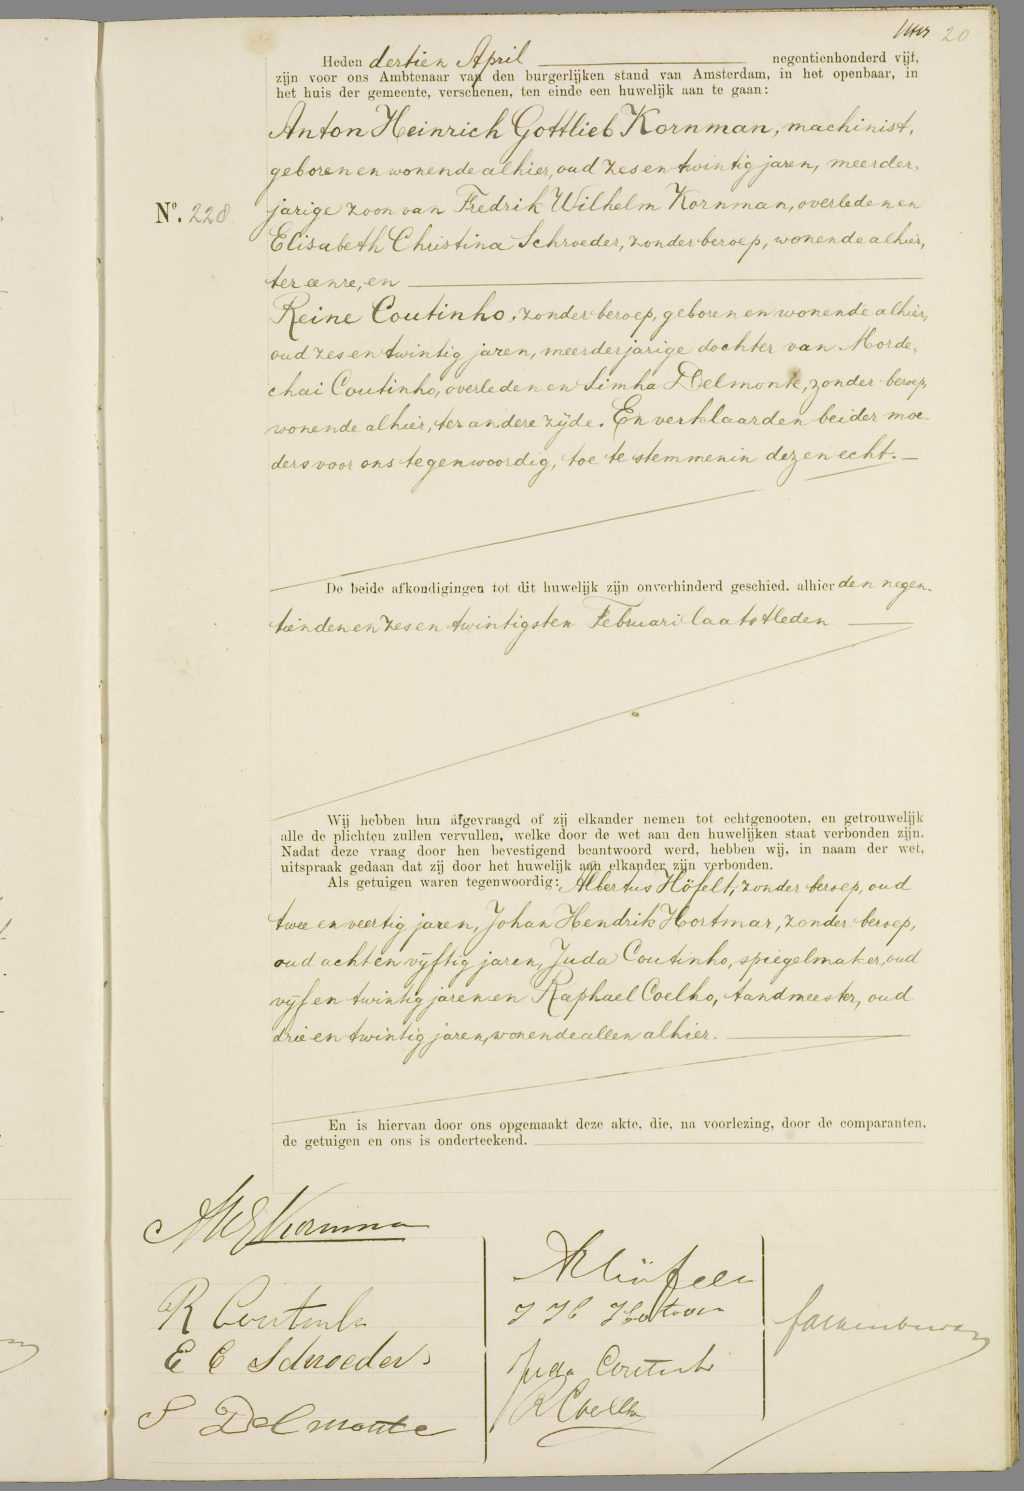 20
Heden dertien April negentienhonderd vijf,
zijn voor ons Ambtenaar van den burgerlijken stand van Amsterdam, in het openbaar, in
het huis der gemeente, verschenen, ten einde een huwelijk aan te gaan:
Anton Heinrich Gottlieb Kornman, machinist,
geboren en wonende alhier, oud zes en twintig jaren, meerder-
No. 228
jarige zoon van Fredrik Wilhelm Kornman, overleden en
Elisabeth Christina Schroeder, zonder beroep, wonende alhier,
ter eenre, en
Reine Coutinho, zonder beroep, geboren en wonende alhier,
oud zes en twintig jaren, meerderjarige dochter van Morde-
chai Coutinho, overleden en Simha Delmonte, zonder beroep
wonende alhier, ter andere zijde. En verklaarden beider moe-
ders voor ons tegenwoordig, toe te stemmen in dezen echt.
De beide afkondigingen tot dit huwelijk zijn onverhinderd geschied, alhier den negen-
tienden en zes en twintigsten Februari laatstleden
Wij hebben hun afgevraagd of zij elkander nemen tot echtgenooten, en getrouwelijk
alle de plichten zullen vervullen, welke door de wet aan den huwelijken staat verbonden zijn.
Nadat deze vraag door hen bevestigend beantwoord werd, hebben wij, in naam der wet,
uitspraak gedaan dat zij door het huwelijk aan elkander zijn verbonden.
Als getuigen waren tegenwoordig: Albertus Höfelt, zonder beroep, oud
twee en veertig jaren, Johan Hendrik Hortmar, zonder beroep,
oud acht en vijftig jaren, Juda Coutinho, spiegelmaker, oud
vijf en twintig jaren en Raphael Coelho, tandmeester, oud
drie en twintig jaren, wonende allen alhier.
En is hiervan door ons opgemaakt deze akte, die, na voorlezing, door de comparanten,
de getuigen en ons is onderteekend.
AHG Kornman
R Coutinho
E C Schroeders
S Delmonte
J H
Juda Coutinho
R Coelho